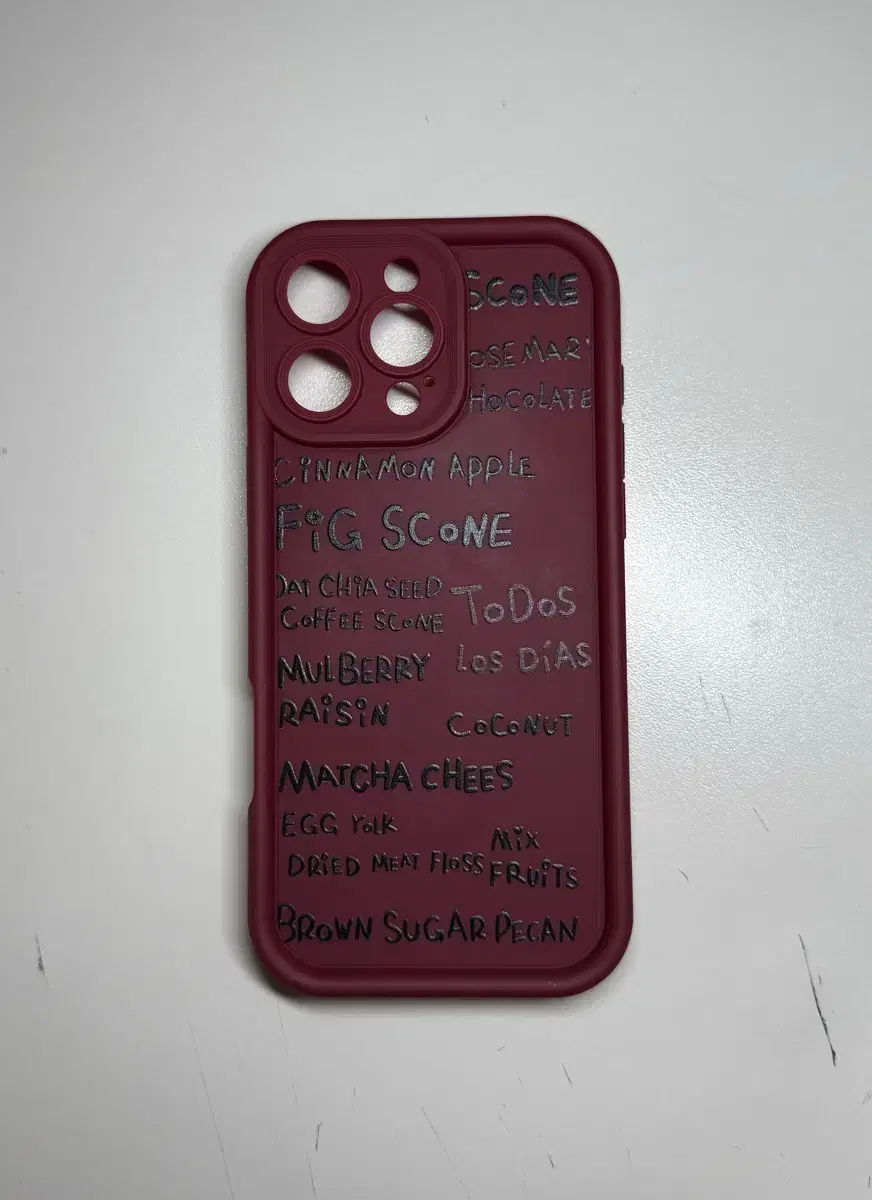 SCONE
OSEMARY
HOCOLATE
CINNAMON APPLE
FiG SCONE
OAT CHiA SEED
COFFEE SCONE
ToDoS
LOS DÍAS
MULBERRY
RAiSiN
COCONUT
MATCHA CHEES
EGG YOLK
DRiED MEAT FLOSS
MiX
FRUiTS
BROWN SUGAR PECAN